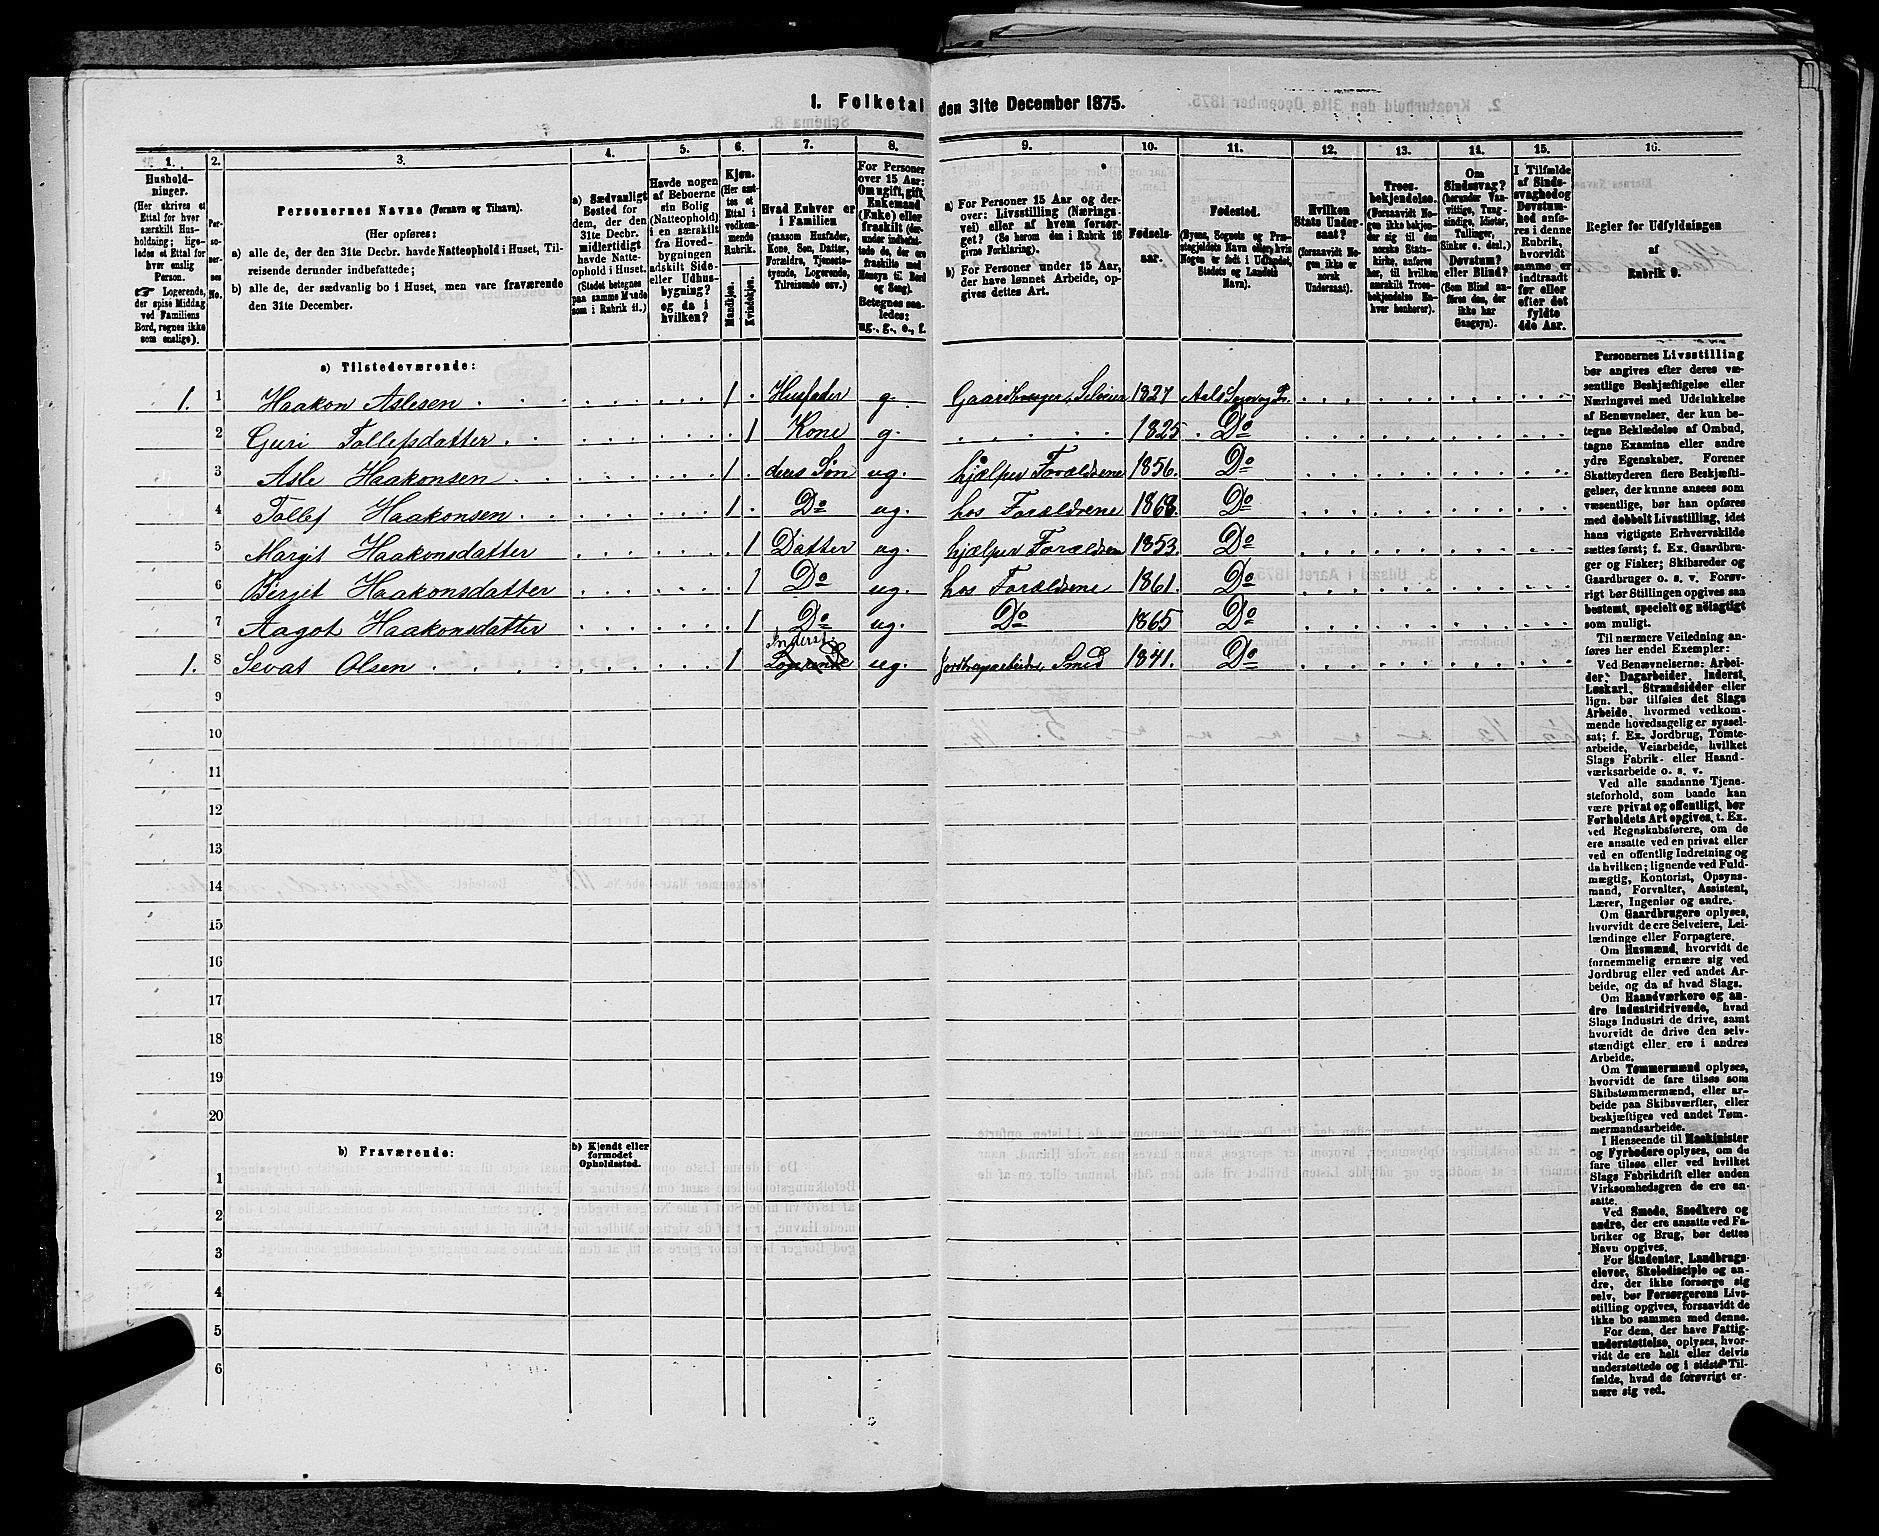 1. Folketal den 31te December 1875.
1.
2.
3.
4.
5.
6.
7.
8.
9.
10.
11.
12.
13.
14.
15.
16.
Hushold-
ninger.
(Her skrives et
Ettal for hver
særskilt Hus-
holdning; lige-
ledes et Ettal for
hver enslig
Person.
☞ Logerende,
der spise Middag
ved Familiens
Bord, regnes ikke
som enslige).
Per-
soner-
nes
No.
Personernes Navne (Fornavn og Tilnavn).
(Her opføres:
a) alle de, der den 31te Decbr. havde Natteophold i Huset, Til-
reisende derunder indbefattede;
b) alle de, der sædvanlig bo i Huset, men vare fraværende
den 31te December.
a) Sædvanligt
Bosted for
dem, der den
31te Decbr.
midlertidigt
havde Natte-
ophold i Huset.
(Stedet betegnes
paa samme Maade
som i Rubrik 11.)
Havde nogen
af Beboerne
sin Bolig
(Natteophold)
i en særskilt
fra Hoved-
bygningen
adskilt Side-
eller Udhus-
bygning?
og da i
hvilken?
Kjøn.
(Her sæt-
tes et
Ettal i
vedkom-
mende
Rubrik.
Mandkjøn.
Kvindekjøn.
Hvad Enhver er
i Familien
(saasom Husfader,
Kone, Søn, Datter,
Forældre, Tjeneste-
tyende, Logerende,
Tilreisende osv.)
For Personer
over 15 Aar:
Om ugift, gift,
Enkemand
(Enke) eller
fraskilt (der-
under indbefat-
tede de, der ere
fraskilte med
Hensyn til Bord
og Seng).
Betegnes saa-
ledes:
ug., g., e., f.
a) For Personer 15 Aar og der-
over: Livsstilling (Nærings-
vei) eller af hvem forsør-
get? (Se herom den i Rubrik 16
givne Forklaring).
b) For Personer under 15 Aar,
der have lønnet Arbeide, op-
gives dettes Art.
Fødsels-
aar.
Fødested.
(Byens, Sognets og Præ-
stegjeldets Navn eller, hvis
Nogen er født i Udlandet,
Stedets og Landets
Navn).
Hvilken
Stats Under-
saat?
(forsaavidt No-
gen ikke er
norsk
Undersaat).
Troes-
bekjendelse.
(Forsaavidt No-
gen ikke bekjen-
der sig til den
norske Stats-
kirke, anføres
her, til hvilken
særskilt Troes-
bekjendelse En-
hver henhører).
Om
Sindssvag?
(herunder Van-
vittige, Tung-
sindige, Idioter,
Tullinger,
Sinker o. desl.)
Døvstum?
eller Blind?
(Som Blind an-
føres den, der
ikke har
Gangsyn).
I Tilfælde
af Sinds-
svaghed og
Døvstum-
hed anfø-
res i denne
Rubrik,
hvorvidt
samme er
indtraadt
før eller
efter det
fyldte
4de Aar.
Regler for Udfyldningen
af
Rubrik 9.
a) Tilstedeværende:
1. 1 Haakon Aslesen 1 Husfader g. Gaardbruger, Selveier 1827 Aals
2 Guri Tollefsdatter 1 Kone g. 1825 Do
3 Asle Haakonsen 1 deres Søn ug. hjælper Forældrene 1856. Do
4 Tollef Haakonsen 1 Do ug. hos Forældrene 1868. Do
5 Margit Haakonsdatter 1 Datter ug. hjælper Forældrene 1853. Do
6 Birgit Haakonsdatter 1 Do ug. hos Forældrene 1861. Do
7 Aagot Haakonsdatter 1 Do ug. Do 1865 Do
Inderst.
1. 8 Sevat Olsen 1 Logerende ug. Smed 1841. Do
9
10
11
12
13
14
15
16
17
18
19
20
b) Fraværende:
b) Kjendt eller
formodet
Opholdssted.
1
2
3
4
5
6
Personernes Livsstilling
bør angives efter deres væ-
sentlige Beskjæftigelse eller
Næringsvei med Udelukkelse
af Benævnelser, der kun be-
tegne Beklædelse af Ombud,
tagne Examina eller andre
ydre Egenskaber. Forener
Skatteyderen flere Beskjæfti-
gelser, der kunne ansees som
væsentlige, bør han opføres
med dobbelt Livsstilling, idet
hans vigtigste Erhvervskilde
sættes først; f. Ex. Gaardbru-
ger og Fisker; Skibsreder og
Gaardbruger o. s. v. Forøv-
rigt bør Stillingen opgives saa
bestemt, specielt og nøiagtigt
som muligt.
Til nærmere Veiledning an-
føres her endel Exempler:
Ved Benævnelserne: Arbei-
der, Dagarbeider, Inderst,
Løskarl, Strandsidder eller
lign. bør tilføies det Slags
Arbeide, hvormed vedkom-
mende hovedsagelig er syssel-
sat; f. Ex. Jordbrug, Tomte-
arbeide, Veiarbeide, hvilket
Slags Fabrik- eller Haand-
værksarbeide o. s. v.
Ved alle saadanne Tjene-
steforhold, som baade kan
være privat og offentligt, bør
Forholdets Art opgives, t. Ex.
ved Regnskabsførere, om de
ere ansatte ved en privat eller
ved en offentlig Indretning og
da hvilken; lignende ved Fuld-
mægtig, Kontorist, Opsyns-
mand, Forvalter, Assistent,
Lærer, Ingeniør og andre.
Om Gaardbrugere oplyses,
hvorvidt de ere Selveiere, Lei-
lændinge eller Forpagtere.
Om Husmænd, hvorvidt de
fornemmelig ernære sig ved
Jordbrug eller ved andet Ar-
beide, og da af hvad Slags.
Om Haandværkere og an-
dre Industridrivende, hvad
Slags Industri de drive, samt
hvorvidt de drive den selv-
stændigt eller ere i andres
Arbeide.
Om Tømmermænd oplyses,
hvorvidt de fare tilsøs som
Skibstømmermænd, eller ar-
beide paa Skibsværfter, eller
beskjæftiges ved andet Tøm-
mermandsarbeide.
I Henseende til Maskinister
og Fyrbødere oplyses, om de
fare tilsøs eller ved hvilket
Slags Fabrikdrift eller anden
Virksomhedsgren de ere an-
satte.
Ved Smede, Snedkere og
andre, der ere ansatte ved Fa-
briker og Brug, bør dettes
Navn opgives.
For Studenter, Landbrugs-
elever, Skoledisciple og an-
dre, der ikke forsørge sig
selv, bør Forsørgerens Livs-
stilling opgives, forsaavidt de
ikke bo sammen med denne.
For dem, der have Fattig-
understøttelse, oplyses, hvor-
vidt de ere helt eller delvis
understøttede og i sidste Til-
fælde, hvad de forøvrigt er-
nære sig ved.